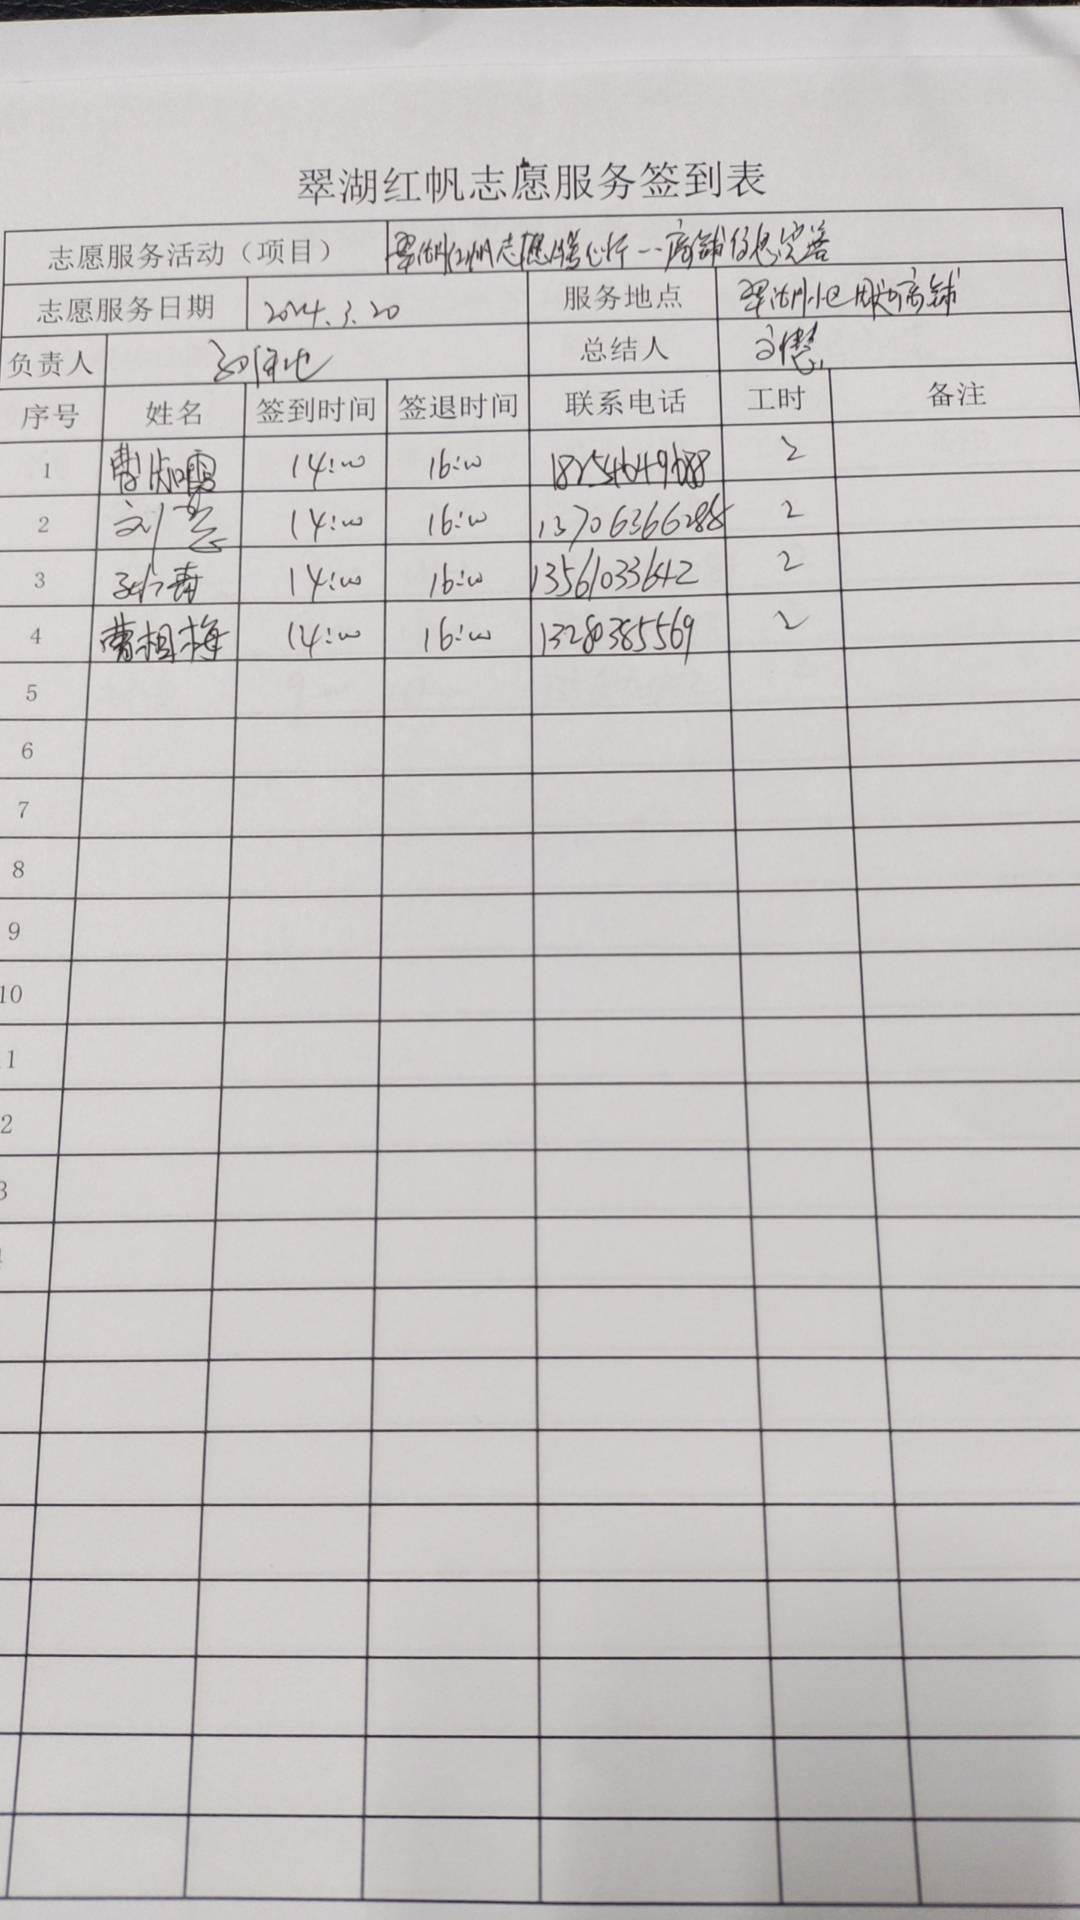 翠湖红帆志愿服务签到表
志愿服务活动（项目） 翠湖红帆志愿暖心行--商铺信息完善
志愿服务日期 2024.3.20 服务地点 翠湖小区周边商铺
负责人 总结人
序号 姓名 签到时间 签退时间 联系电话 工时 备注
1 14:00 16:00 18254649688 2
2 刘慧 14:00 16:00 13706366288 2
3 14:00 16:00 13561033642 2
4 曹相梅 14:00 16:00 13280385569 2
5
6
7
8
9
10
1
2
3